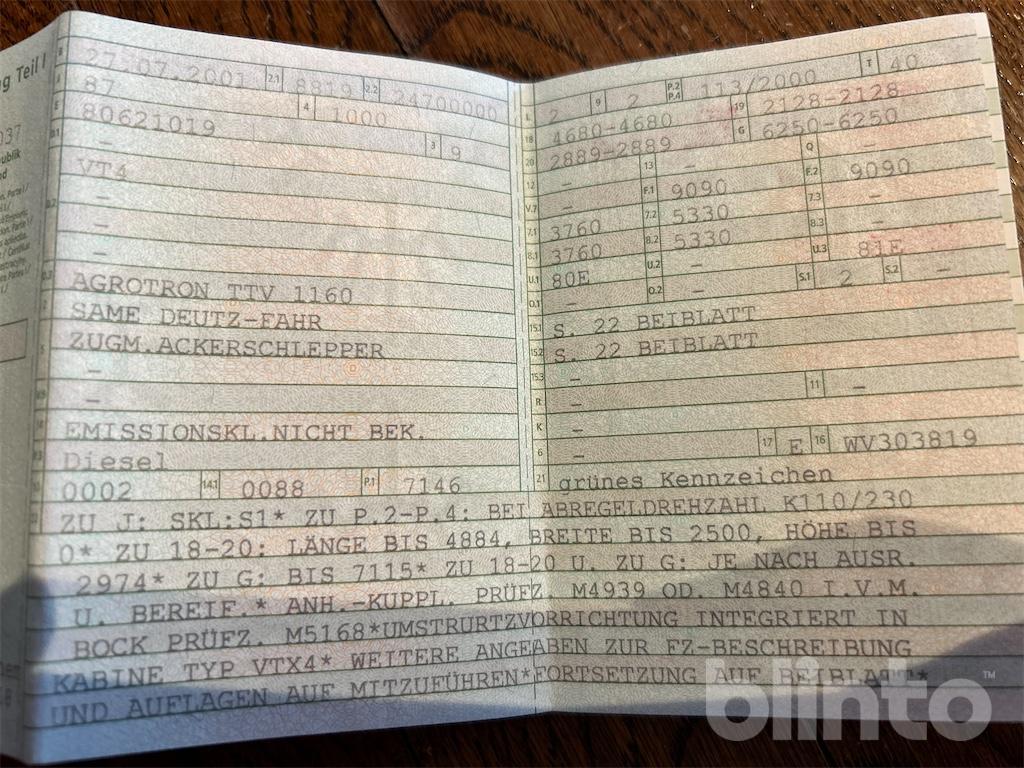 g Teil I
B 27.07.2001 2.1 8819 2.2 24700000
J 87 4 1000
E 80621019 3 9
D.1 —
VT4
D.2 —
—
—
D.3 AGROTRON TTV 1160
2 SAME DEUTZ-FAHR
5 ZUGM.ACKERSCHLEPPER
—
V.9 —
14 EMISSIONSKL.NICHT BEK.
P.3 Diesel
10 0002 14.1 0088 P.1 7146
L 2 9 2 P.2 P.4 113/2000 T 40
18 4680-4680 19 2128-2128
20 2889-2889 G 6250-6250
12 — 13 — Q —
V.7 — F.1 9090 F.2 9090
7.1 3760 7.2 5330 7.3 —
8.1 3760 8.2 5330 8.3 —
U.1 80E U.2 — U.3 81E
O.1 — O.2 — S.1 2 S.2 —
15.1 S. 22 BEIBLATT
15.2 S. 22 BEIBLATT
15.3 —
R — 11 —
K —
6 — 17 E 16 WV303819
21 grünes Kennzeichen
22 ZU J: SKL:S1* ZU P.2-P.4: BEI ABREGELDREHZAHL K110/230
0* ZU 18-20: LÄNGE BIS 4884, BREITE BIS 2500, HÖHE BIS
2974* ZU G: BIS 7115* ZU 18-20 U. ZU G: JE NACH AUSR.
U. BEREIF.* ANH.-KUPPL. PRÜFZ. M4939 OD. M4840 I.V.M.
BOCK PRÜFZ. M5168*UMSTRURTZVORRICHTUNG INTEGRIERT IN
KABINE TYP VTX4* WEITERE ANGEABEN ZUR FZ-BESCHREIBUNG
UND AUFLAGEN AUF MITZUFÜHREN*FORTSETZUNG AUF BEIBLATT*
blinto™